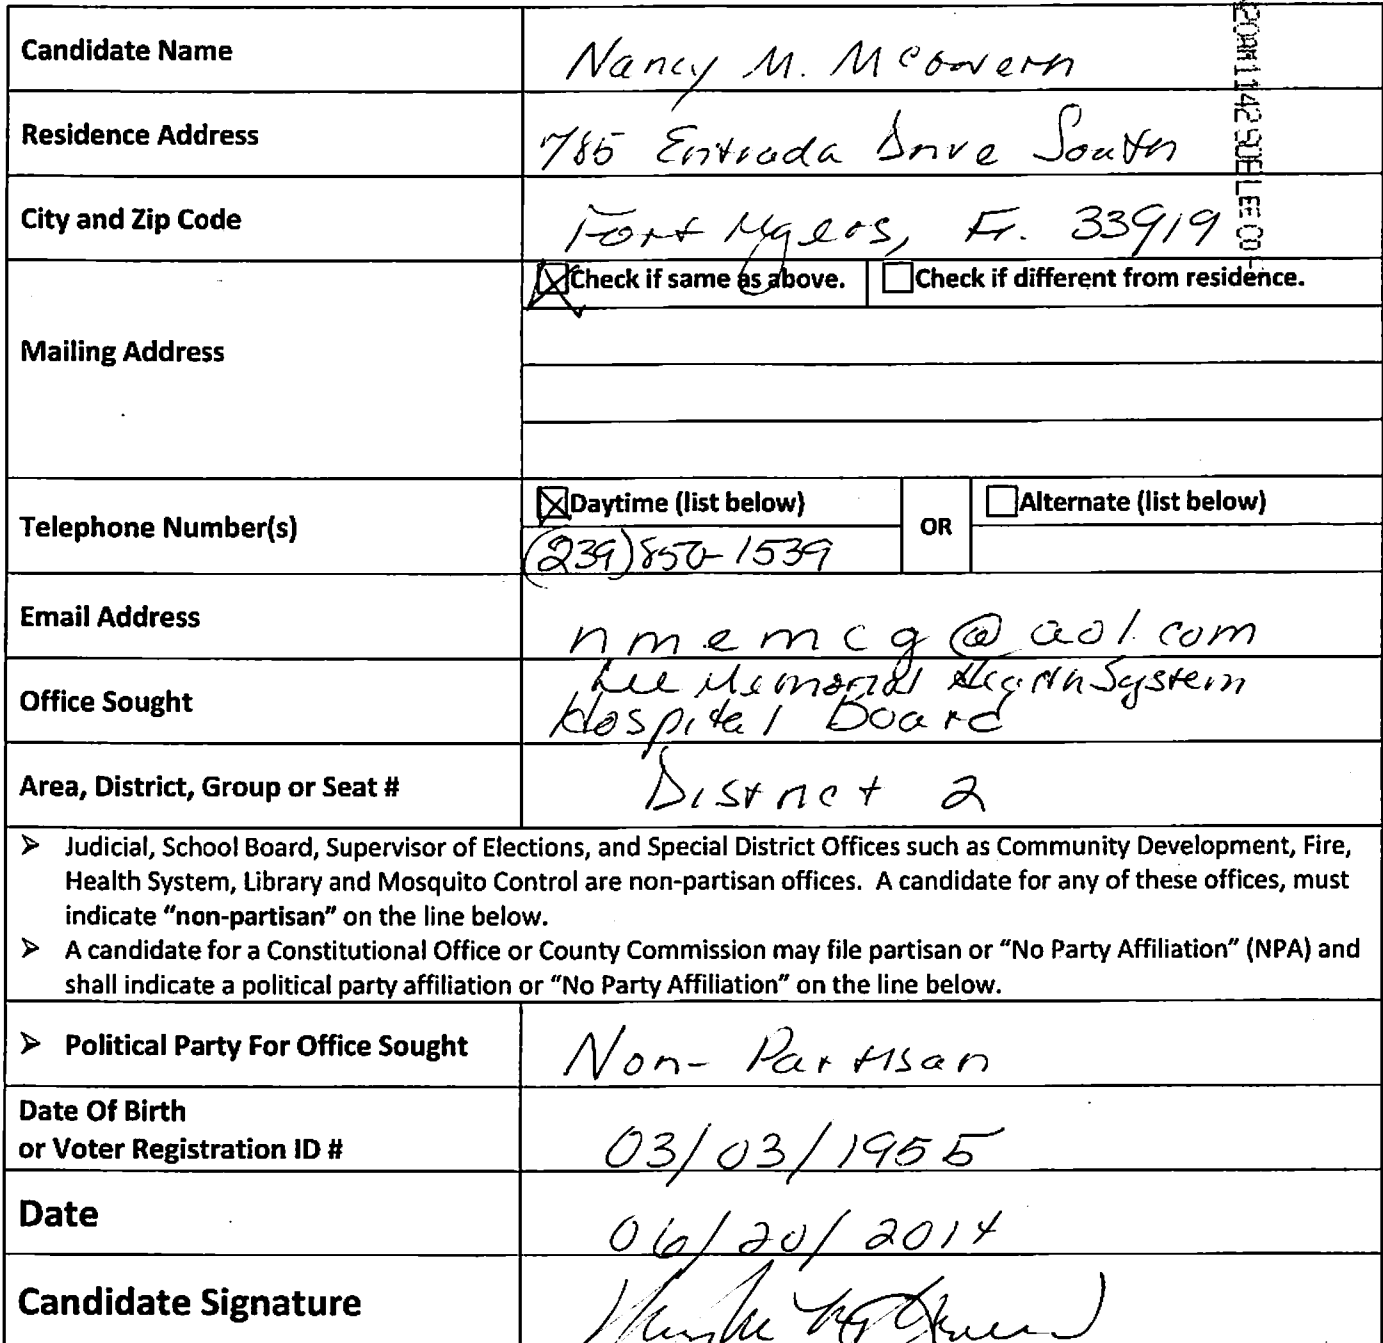 Candidate Name Nancy M. McGovern
Residence Address 785 Entrada Drive South
City and Zip Code Fort Myers, FL. 33919
20AM1142SOE LEE CO
☒ Check if same as above. ☐ Check if different from residence.
Mailing Address
Telephone Number(s) ☒ Daytime (list below) OR ☐ Alternate (list below)
(239)850-1539
Email Address nmemcg@aol.com
Office Sought Lee Memorial Health System
Hospital Board
Area, District, Group or Seat # District 2
➢ Judicial, School Board, Supervisor of Elections, and Special District Offices such as Community Development, Fire,
Health System, Library and Mosquito Control are non-partisan offices. A candidate for any of these offices, must
indicate "non-partisan" on the line below.
➢ A candidate for a Constitutional Office or County Commission may file partisan or "No Party Affiliation" (NPA) and
shall indicate a political party affiliation or "No Party Affiliation" on the line below.
➢ Political Party For Office Sought Non-Partisan
Date Of Birth
or Voter Registration ID # 03/03/1955
Date 06/20/2014
Candidate Signature